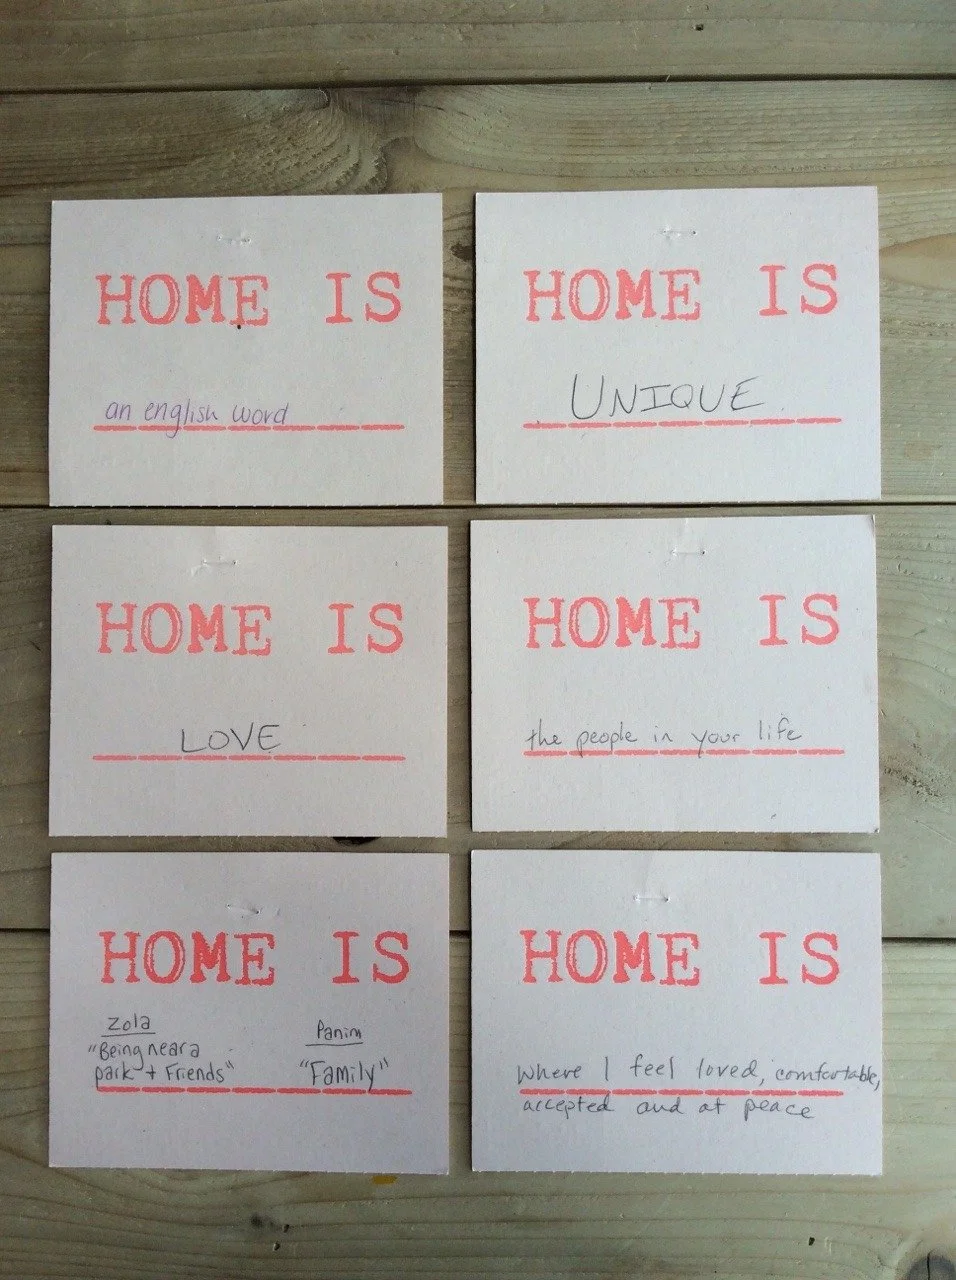 HOME IS
an english word
HOME IS
UNIQUE
HOME IS
LOVE
HOME IS
the people in your life
HOME IS
Zola
"Being near a
park + Friends"
Panim
"Family"
HOME IS
where I feel loved, comfortable,
accepted and at peace